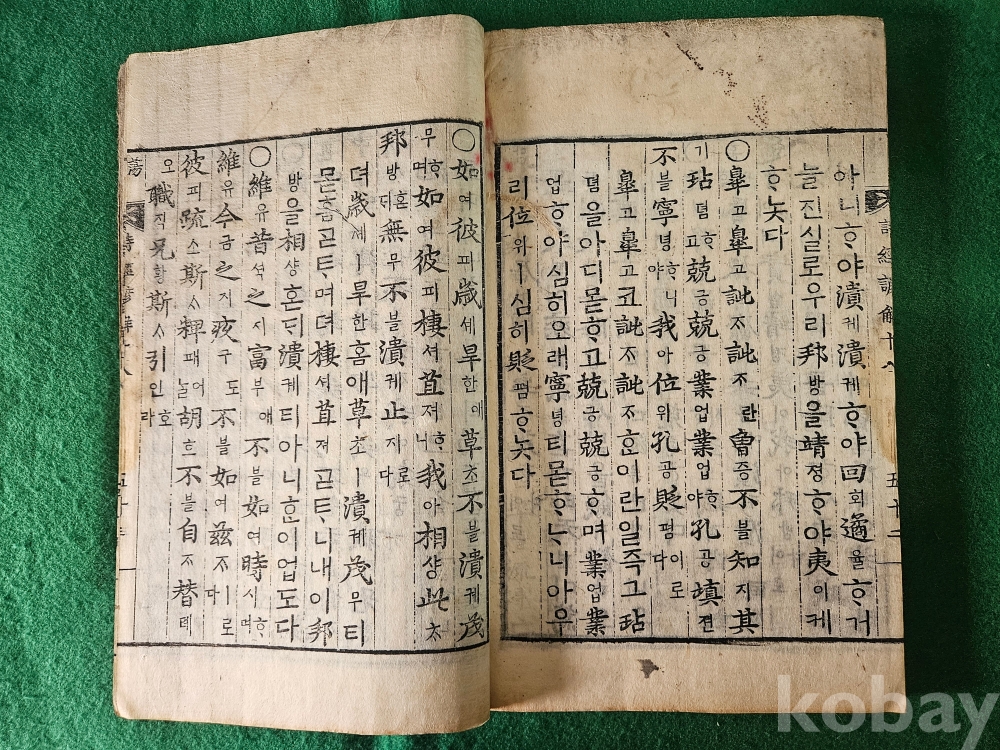 詩經諺解十八 五十二
아니ᄒᆞ야潰궤潰궤ᄒᆞ야回회遹율ᄒᆞ거
늘진실로우리邦방을靖졍ᄒᆞ야夷이케
ᄒᆞ놋다
○皐고皐고訿ᄌᆞ訿ᄌᆞ란曾증不블知지其
기玷뎜ᄒᆞ고兢긍兢긍業업業업ᄒᆞ야孔공塡뎐
不블寧녕ᄒᆞ니야我아位위孔공貶폄이로다
皐고皐고코訿ᄌᆞ訿ᄌᆞᄒᆞᆫ이란일즉그玷
뎜을아디몯ᄒᆞ고兢긍兢긍ᄒᆞ며業업業
업ᄒᆞ야심히오래寧녕티몯ᄒᆞᄂᆞ니아우
리位위ㅣ심히貶폄ᄒᆞ놋다
○如여彼피歲셰旱한애草초不블潰궤茂
무ᄒᆞ며如여彼피棲셔苴져ᄒᆞ니我아相샹此ᄎᆞ
邦방혼ᄃᆡ無무不블潰궤止지로다
뎌歲셰ㅣ旱한홈애草초ㅣ潰궤茂무티
몯홈ᄀᆞᆮᄐᆞ며뎌棲셔苴져ᄀᆞᆮᄐᆞ니내이邦
방을相샹혼ᄃᆡ潰궤티아니ᄒᆞᆫ이업도다
○維유昔셕之지富부애不블如여時시ᄒᆞ며
維유今금之지疚구도不블如여玆ᄌᆞㅣ로다
彼피疏소斯ᄉᆞ粺패어늘胡호不블自ᄌᆞ替톄
오職직兄황斯ᄉᆞ引인호라
kobay